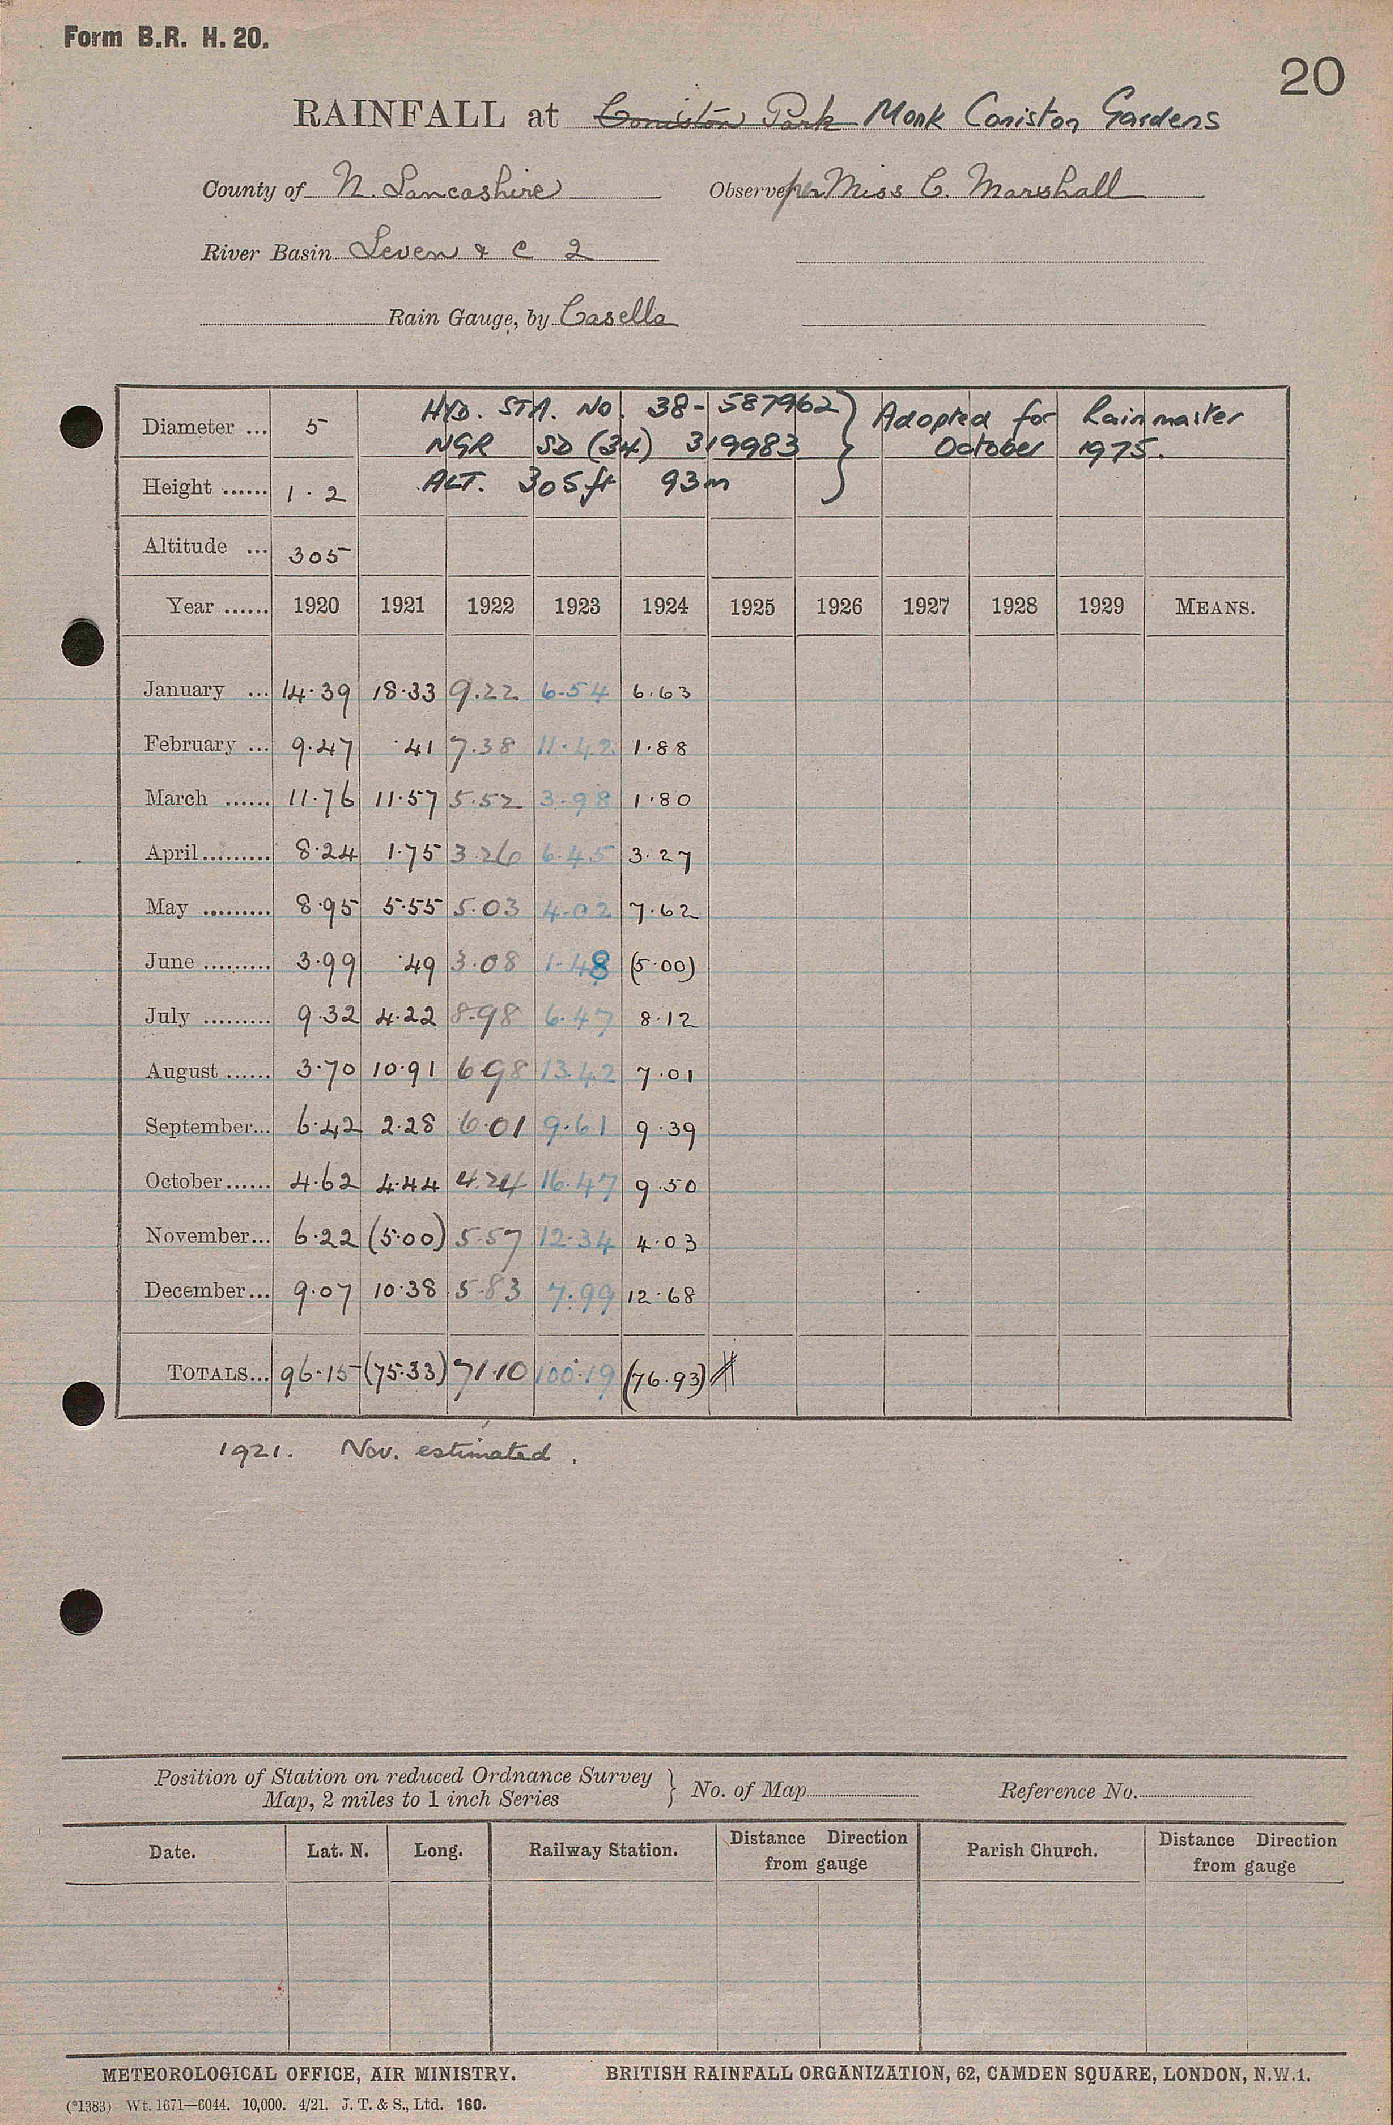 Form B.R. H. 20.
20
RAINFALL at Coniston Park Monk Coniston Gardens
County of N. Lancashire Observer per Miss C. Marshall
River Basin Leven & C 2
Rain Gauge, by Casella
Diameter ... 5 HYD. STA. No. 38-587962 } Adopted for Rainmaster
NGR SD (34) 319983 October 1975.
Height ...... 1.2 ALT. 305ft 93m
Altitude ... 305
Year ...... 1920 1921 1922 1923 1924 1925 1926 1927 1928 1929 MEANS.
January ... 14.39 18.33 9.22 6.54 6.63
February ... 9.47 .41 7.38 11.42 1.88
March ...... 11.76 11.57 5.52 3.98 1.80
April ......... 8.24 1.75 3.26 6.45 3.27
May ......... 8.95 5.55 5.03 4.02 7.62
June ......... 3.99 .49 3.08 1.48 (5.00)
July ......... 9.32 4.22 8.98 6.47 8.12
August ...... 3.70 10.91 6.98 13.42 7.01
September... 6.42 2.28 6.01 9.61 9.39
October...... 4.62 4.44 4.24 16.47 9.50
November... 6.22 (5.00) 5.57 12.34 4.03
December... 9.07 10.38 5.83 7.99 12.68
TOTALS... 96.15 (75.33) 71.10 100.19 (76.93)
1921. Nov. estimated.
Position of Station on reduced Ordnance Survey } No. of Map Reference No.
Map, 2 miles to 1 inch Series
Date. Lat. N. Long. Railway Station. Distance Direction from gauge Parish Church. Distance Direction from gauge
METEOROLOGICAL OFFICE, AIR MINISTRY. BRITISH RAINFALL ORGANIZATION, 62, CAMDEN SQUARE, LONDON, N.W.1.
(*1383) Wt. 1671—6044. 10,000. 4/21. J. T. & S., Ltd. 160.